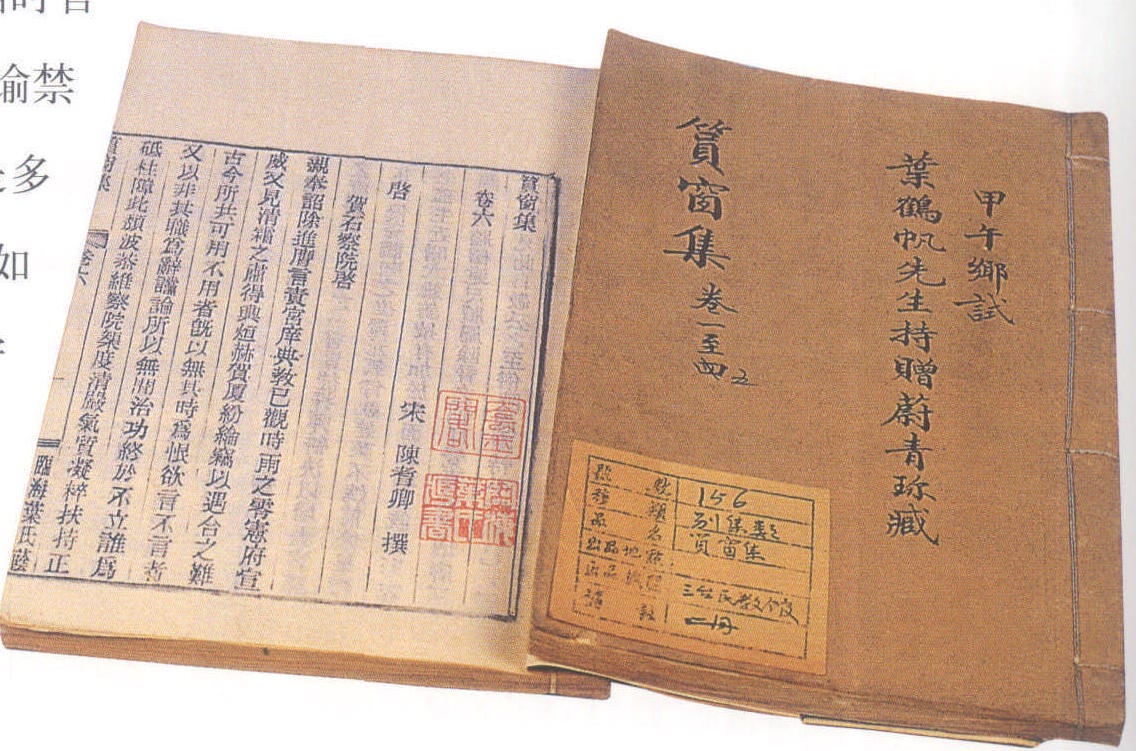 喻禁
多
如
篔窗集
卷六
啓
宋 陳耆卿 撰
賀石察院啓
覩奉詔除進膺言責宮庠典敎已觀時雨之零憲府宣
威又見清霜之肅得輿烜赫賀厦紛綸竊以遇合之難
古今所共可用不用者旣以無其時爲恨欲言不言者
又以非其職爲辭讜論所以無聞治功終於不立誰爲
砥柱障此頹波恭維察院榘度清嚴氣質凝粹扶持正
篔窗集
卷六
臨海葉氏蔭
甲午鄉試
葉鶴帆先生持贈蔚青珎臧
篔窗集 卷一至四
號數 156
種類 別集類
品名 篔窗集
出品地點
出品機關 三台民教館
二冊